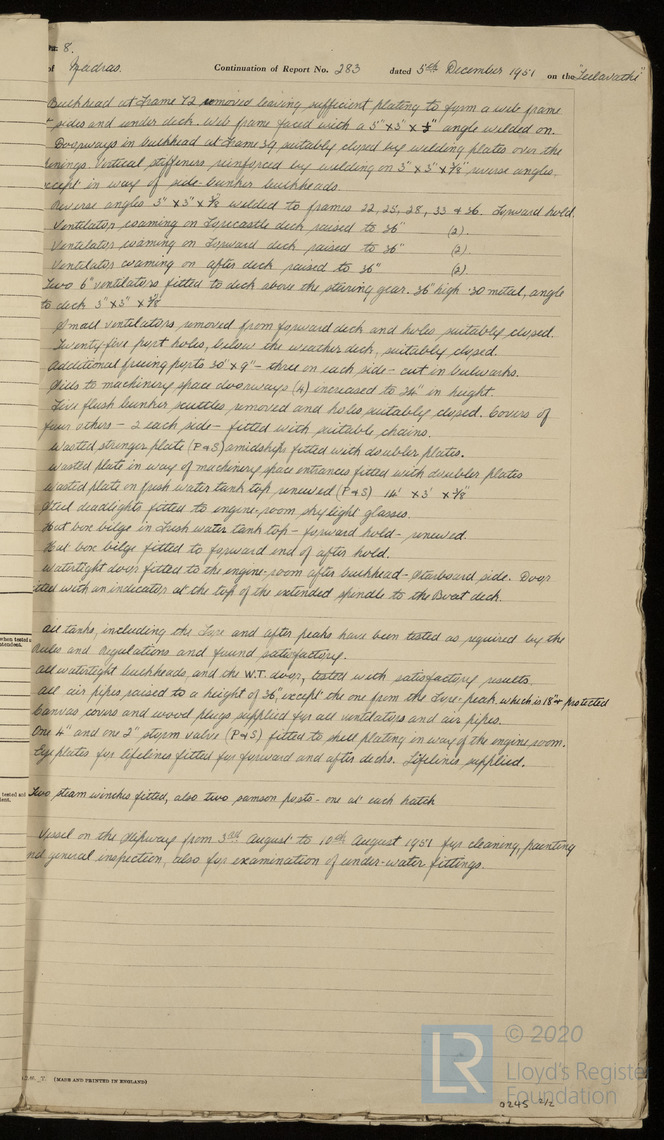 8.
of Madras. Continuation of Report No. 283 dated 5th December 1951 on the "Leelavathi"
Bulkhead at Frame 72 removed leaving sufficient plating to form a web frame
sides and under deck. Web frame faced with a 3" x 3" x angle welded on.
Doorways in bulkhead at Frame 39 suitably closed by welding plates over the
Vertical stiffeners reinforced by welding on 3" x 3" x 3/8" reverse angles.
except in way of side-bunker bulkheads.
Reverse angles 3" x 3" x 3/8 welded to frames 22, 25, 28, 33 & 36. Forward hold.
Ventilator coaming on Forecastle deck raised to 36" (2).
Ventilator coaming on Forward deck raised to 36" (2).
Ventilator coaming on after deck raised to 36" (2)
Two 6" ventilators fitted to deck above the steering gear. 36" high .30 metal, angle
to deck 3" x 3" x 3/8
Small ventilators removed from forward deck and holes suitably closed.
Twenty-five port holes, below the weather deck, suitably closed.
Additional freeing ports 30" x 9" - three on each side - cut in bulwarks.
Sills to machinery space doorways (4) increased to 24" in height.
Five flush bunker scuttles removed and holes suitably closed. Covers of
four others - 2 each side - fitted with suitable chains.
Wasted stringer plate (P & S) amidships fitted with doubler plates.
Wasted plate in way of machinery space entrances fitted with doubler plates
Wasted plate on fresh water tank top renewed (P & S) 14' x 3' x 3/8"
Steel deadlights fitted to engine-room skylight glasses.
Hat box bilge in fresh water tank top - forward hold - renewed.
Hat box bilge fitted to forward end of after hold.
Watertight door fitted to the engine-room after bulkhead - starboard side. Door
itted with an indicator at the top of the extended spindle to the Boat deck.
All tanks, including the Fore and after peaks have been tested as required by the
Rules and Regulations and found satisfactory.
All watertight bulkheads, and the W.T. door, tested with satisfactory results
All air pipes, raised to a height of 36" except the one from the Fore-peak, which is 18" & protected
Canvas covers and wood plugs supplied for all ventilators and air pipes.
One 4" and one 2" storm valve (P & S) fitted to shell plating in way of the engine room.
Eyeplates for lifelines fitted for forward and after decks. Lifelines supplied.
Two steam winches fitted, also two samson posts - one at each hatch
Vessel on the Slipway from 3rd August to 10th August 1951 for cleaning, painting
nd general inspection, also for examination of under-water fittings.
when tested
tendent.
tested and
dent.
(MADE AND PRINTED IN ENGLAND)
LR
© 2020
Lloyd's Register
Foundation
0245 2/2